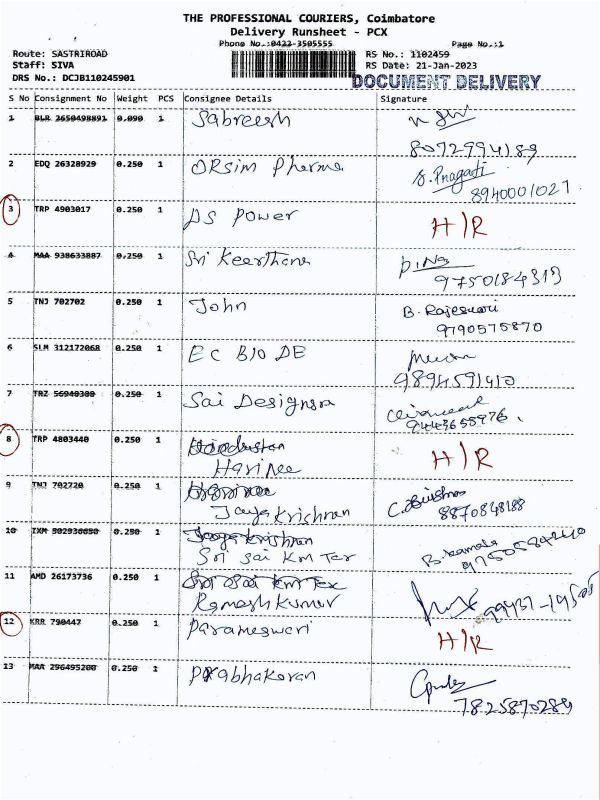 THE PROFESSIONAL COURIERS, Coimbatore
Delivery Runsheet - PCX
Phone No.:0422-3505555 Page No.:1
Route: SASTRIROAD RS No.: 1102459
Staff: SIVA RS Date: 21-Jan-2023
DRS No.: DCJB110245901 DOCUMENT DELIVERY
S No Consignment No Weight PCS Consignee Details Signature
1 BLR 2650498891 0.090 1 Sabreesh
8072994189
2 EDQ 26328929 0.250 1 ORSim Pharma S. Pragati
8940001027
3 TRP 4903017 0.250 1 DS Power H/R
4 MAA 938633887 0.250 1 Sri Keerthana
9750184313
5 TNJ 702702 0.250 1 John B. Rajeswari
9790575870
6 SLM 312172068 0.250 1 EC BIO DE
9894591410
7 TRZ 56940308 0.250 1 Sai Designsra
9443655976.
8 TRP 4803440 0.250 1 Hindustan H/R
Harinee
9 TNJ 702720 0.250 1 Harinee
Jayakrishnan 8870848188
10 IXM 502936650 0.250 1 Jayakrishnan
Sri Sai KM Tex
11 AMD 26173736 0.250 1 Sri Sai KM Tex
Rameshkumar
12 KRR 790447 0.250 1 Parameswari H/R
13 MAA 296495200 0.250 1 Prabhakaran
7825870284